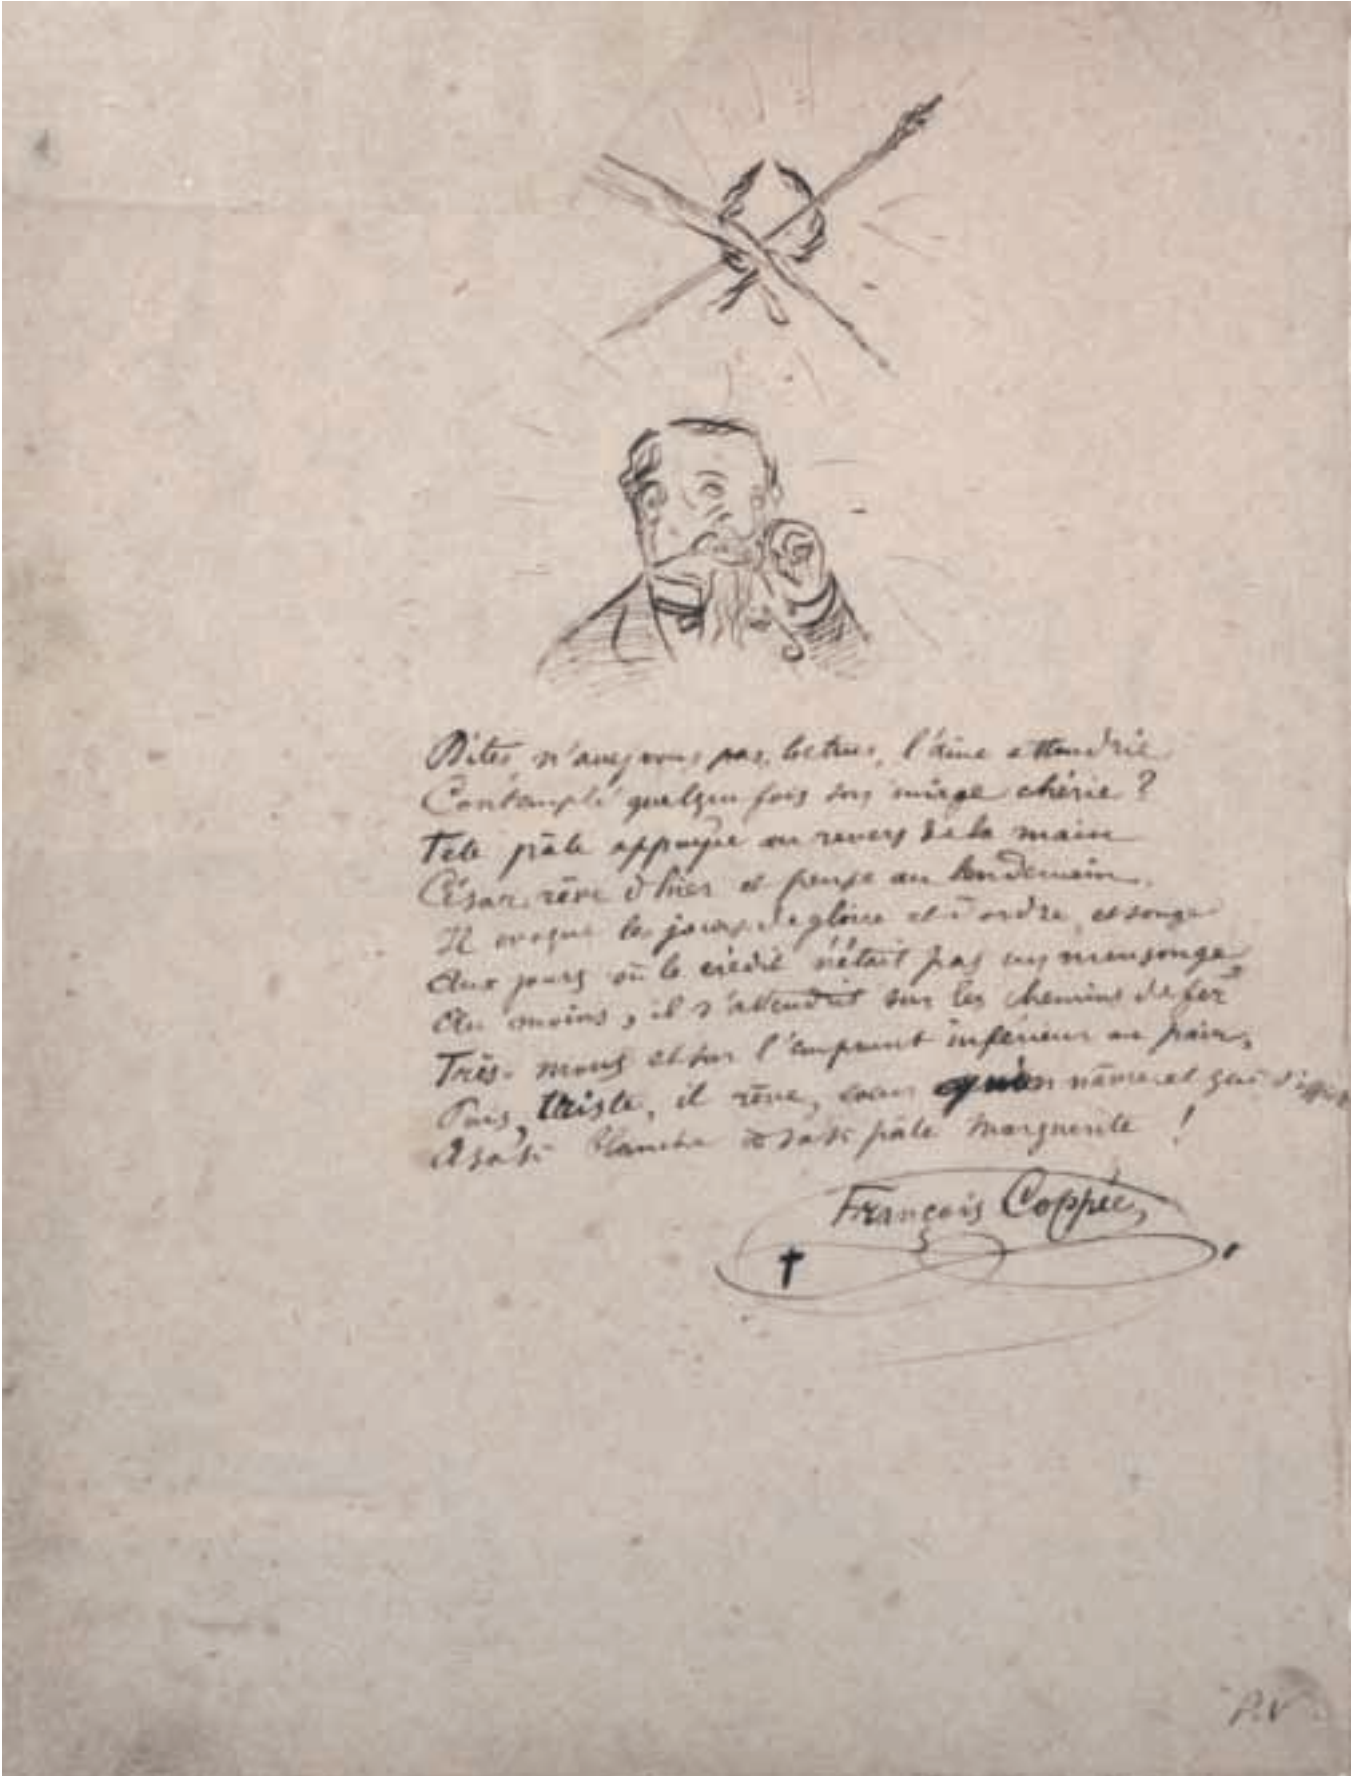 Dites n'avez vous pas, lecteurs, l'âme attendrie
Contemplé quelque fois son image chérie ?
Tete pâle appuyée au revers de la main
César rêve d'hier et pense au lendemain.
Il evoque les jours de gloire et d'ordre, et songe
Aux jours où le crédit n'était pas un mensonge
Au moins, il s'attendrit sur les chemins de fer
Très-mous et sur l'emprunt inferieur au pair,
Puis, triste, il rêve, coeur qu'on navre et que
A Blanche pâle Marguerite !
François Coppée
P.V